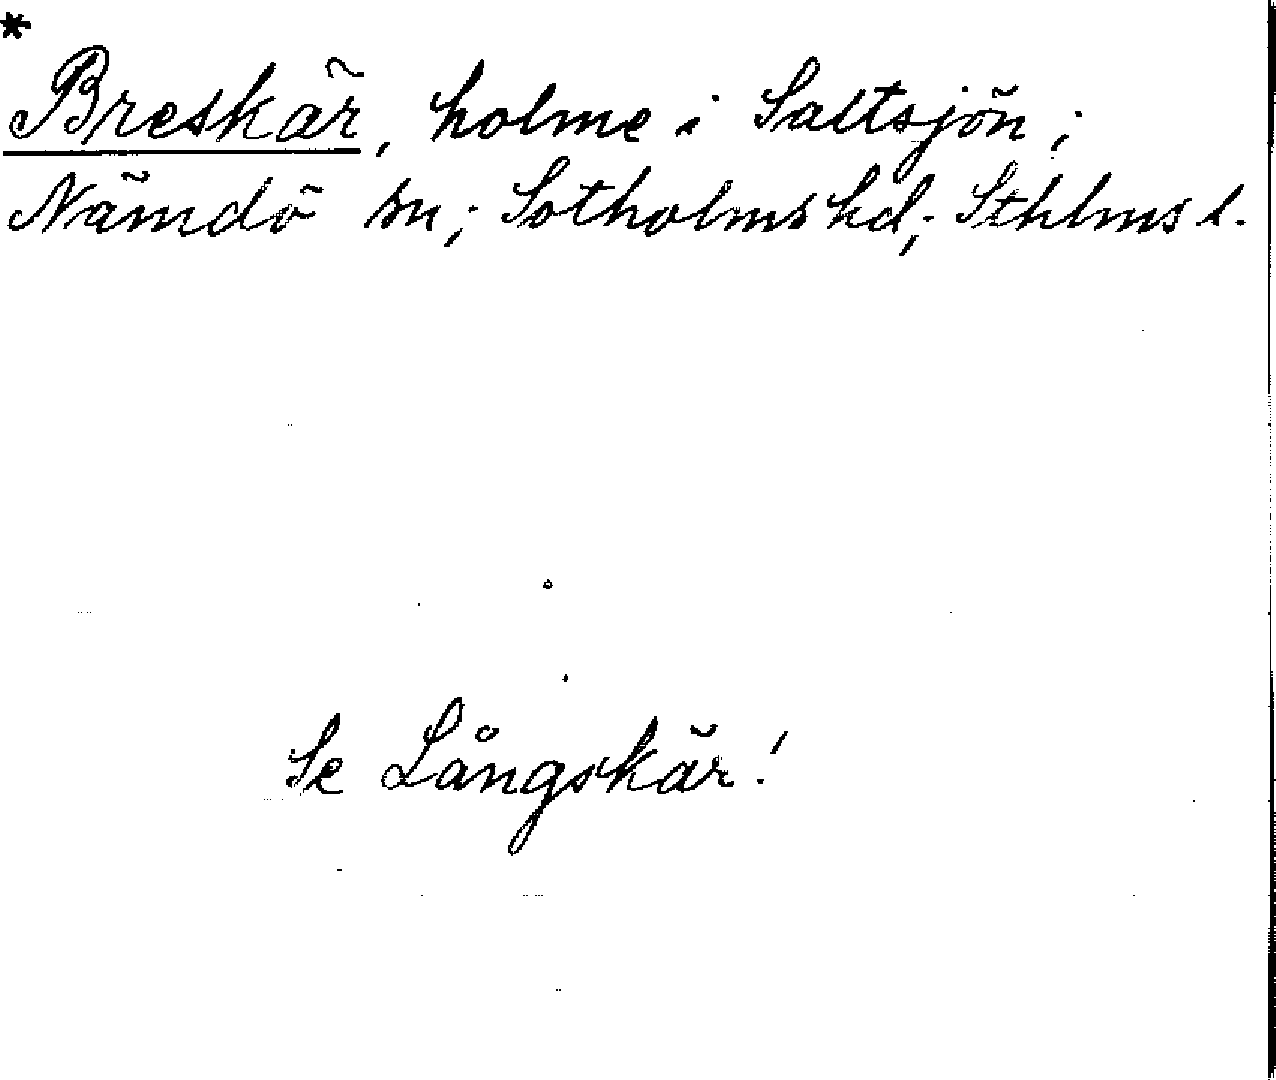 *
Breskär, holme i Saltsjön;
Nämdö sn; Sotholms hd; Sthlms l.
Se Långskär!